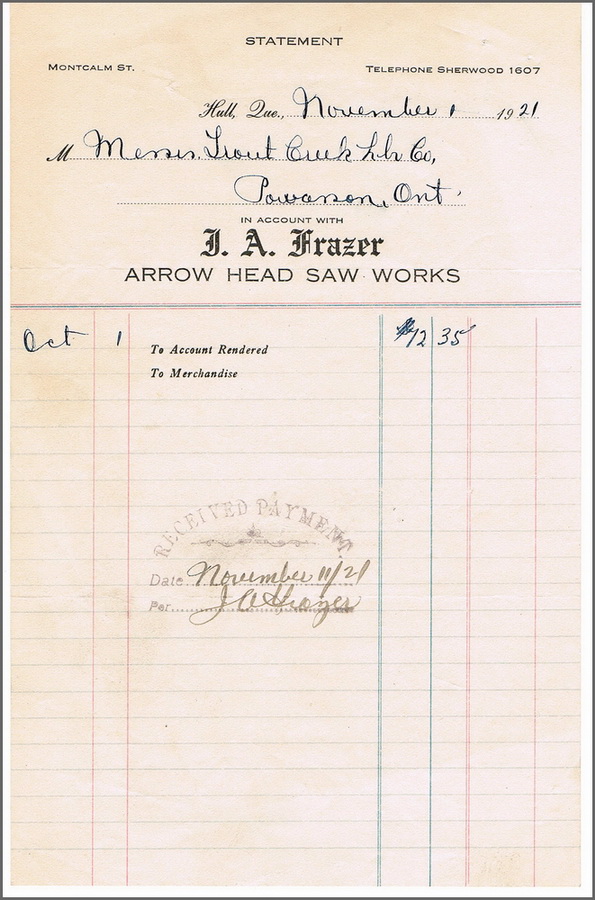 STATEMENT
MONTCALM ST. TELEPHONE SHERWOOD 1607
Hull, Que., November 1 1921
M Messrs. Trout Creek Lbr Co,
Powasson, Ont.
IN ACCOUNT WITH
J. A. Frazer
ARROW HEAD SAW WORKS
Oct 1 To Account Rendered $12 35
To Merchandise
RECEIVED PAYMENT
Date November 11/21
Per J A Frazer